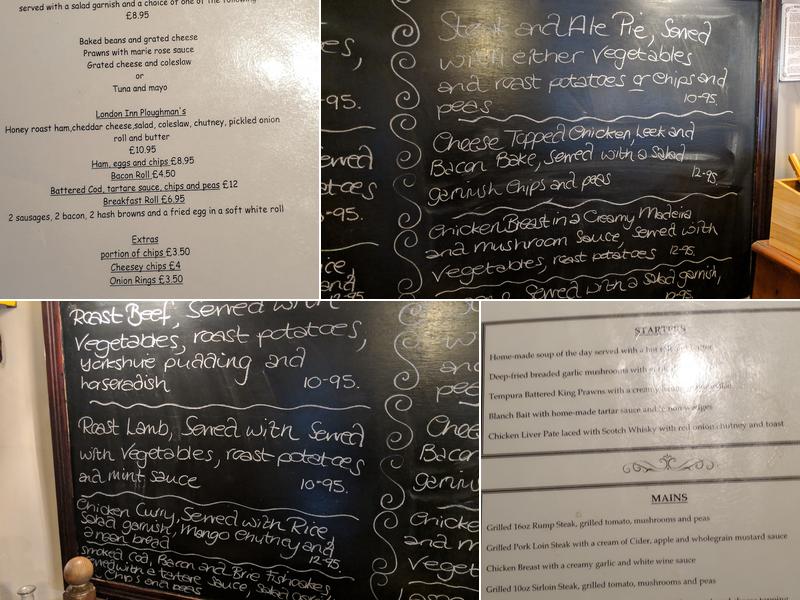 served with a salad garnish and a choice of one of the following
£8.95
Baked beans and grated cheese
Prawns with marie rose sauce
Grated cheese and coleslaw
or
Tuna and mayo
London Inn Ploughman's
Honey roast ham,cheddar cheese,salad, coleslaw, chutney, pickled onion
roll and butter
£10.95
Ham, eggs and chips £8.95
Bacon Roll £4.50
Battered Cod, tartare sauce, chips and peas £12
Breakfast Roll £6.95
2 sausages, 2 bacon, 2 hash browns and a fried egg in a soft white roll
Extras
portion of chips £3.50
Cheesey chips £4
Onion Rings £3.50
Steak and Ale Pie, Served
with either Vegetables
and roast potatoes or Chips and
peas 10-95.
Cheese Topped Chicken, Leek and
Bacon Bake, Served with a Salad
garnish Chips and peas 12-95.
Chicken Breast in a Creamy Madeira
and mushroom Sauce, served with
Vegetables, roast potatoes 12-95.
Served with a salad garnish,
12-95.
Roast Beef, Served with
Vegetables, roast potatoes,
Yorkshire pudding and
horseradish 10-95.
Roast Lamb, Served with Served
with Vegetables, roast potatoes
and mint sauce 10-95.
Chicken Curry, Served with Rice
Salad garnish, Mango Chutney and
a naan bread 12-95.
Smoked Cod, Bacon and Brie Fishcakes
Served with a tartare Sauce, Salad
Chips and peas
STARTERS
Home-made soup of the day served with a
Deep-fried breaded garlic mushrooms with
Tempura Battered King Prawns with a creamy
Blanch Bait with home-made tartar sauce and lemon wedges
Chicken Liver Pate laced with Scotch Whisky with red onion chutney and toast
MAINS
Grilled 16oz Rump Steak, grilled tomato, mushrooms and peas
Grilled Pork Loin Steak with a cream of Cider, apple and wholegrain mustard sauce
Chicken Breast with a creamy garlic and white wine sauce
Grilled 10oz Sirloin Steak, grilled tomato, mushrooms and peas